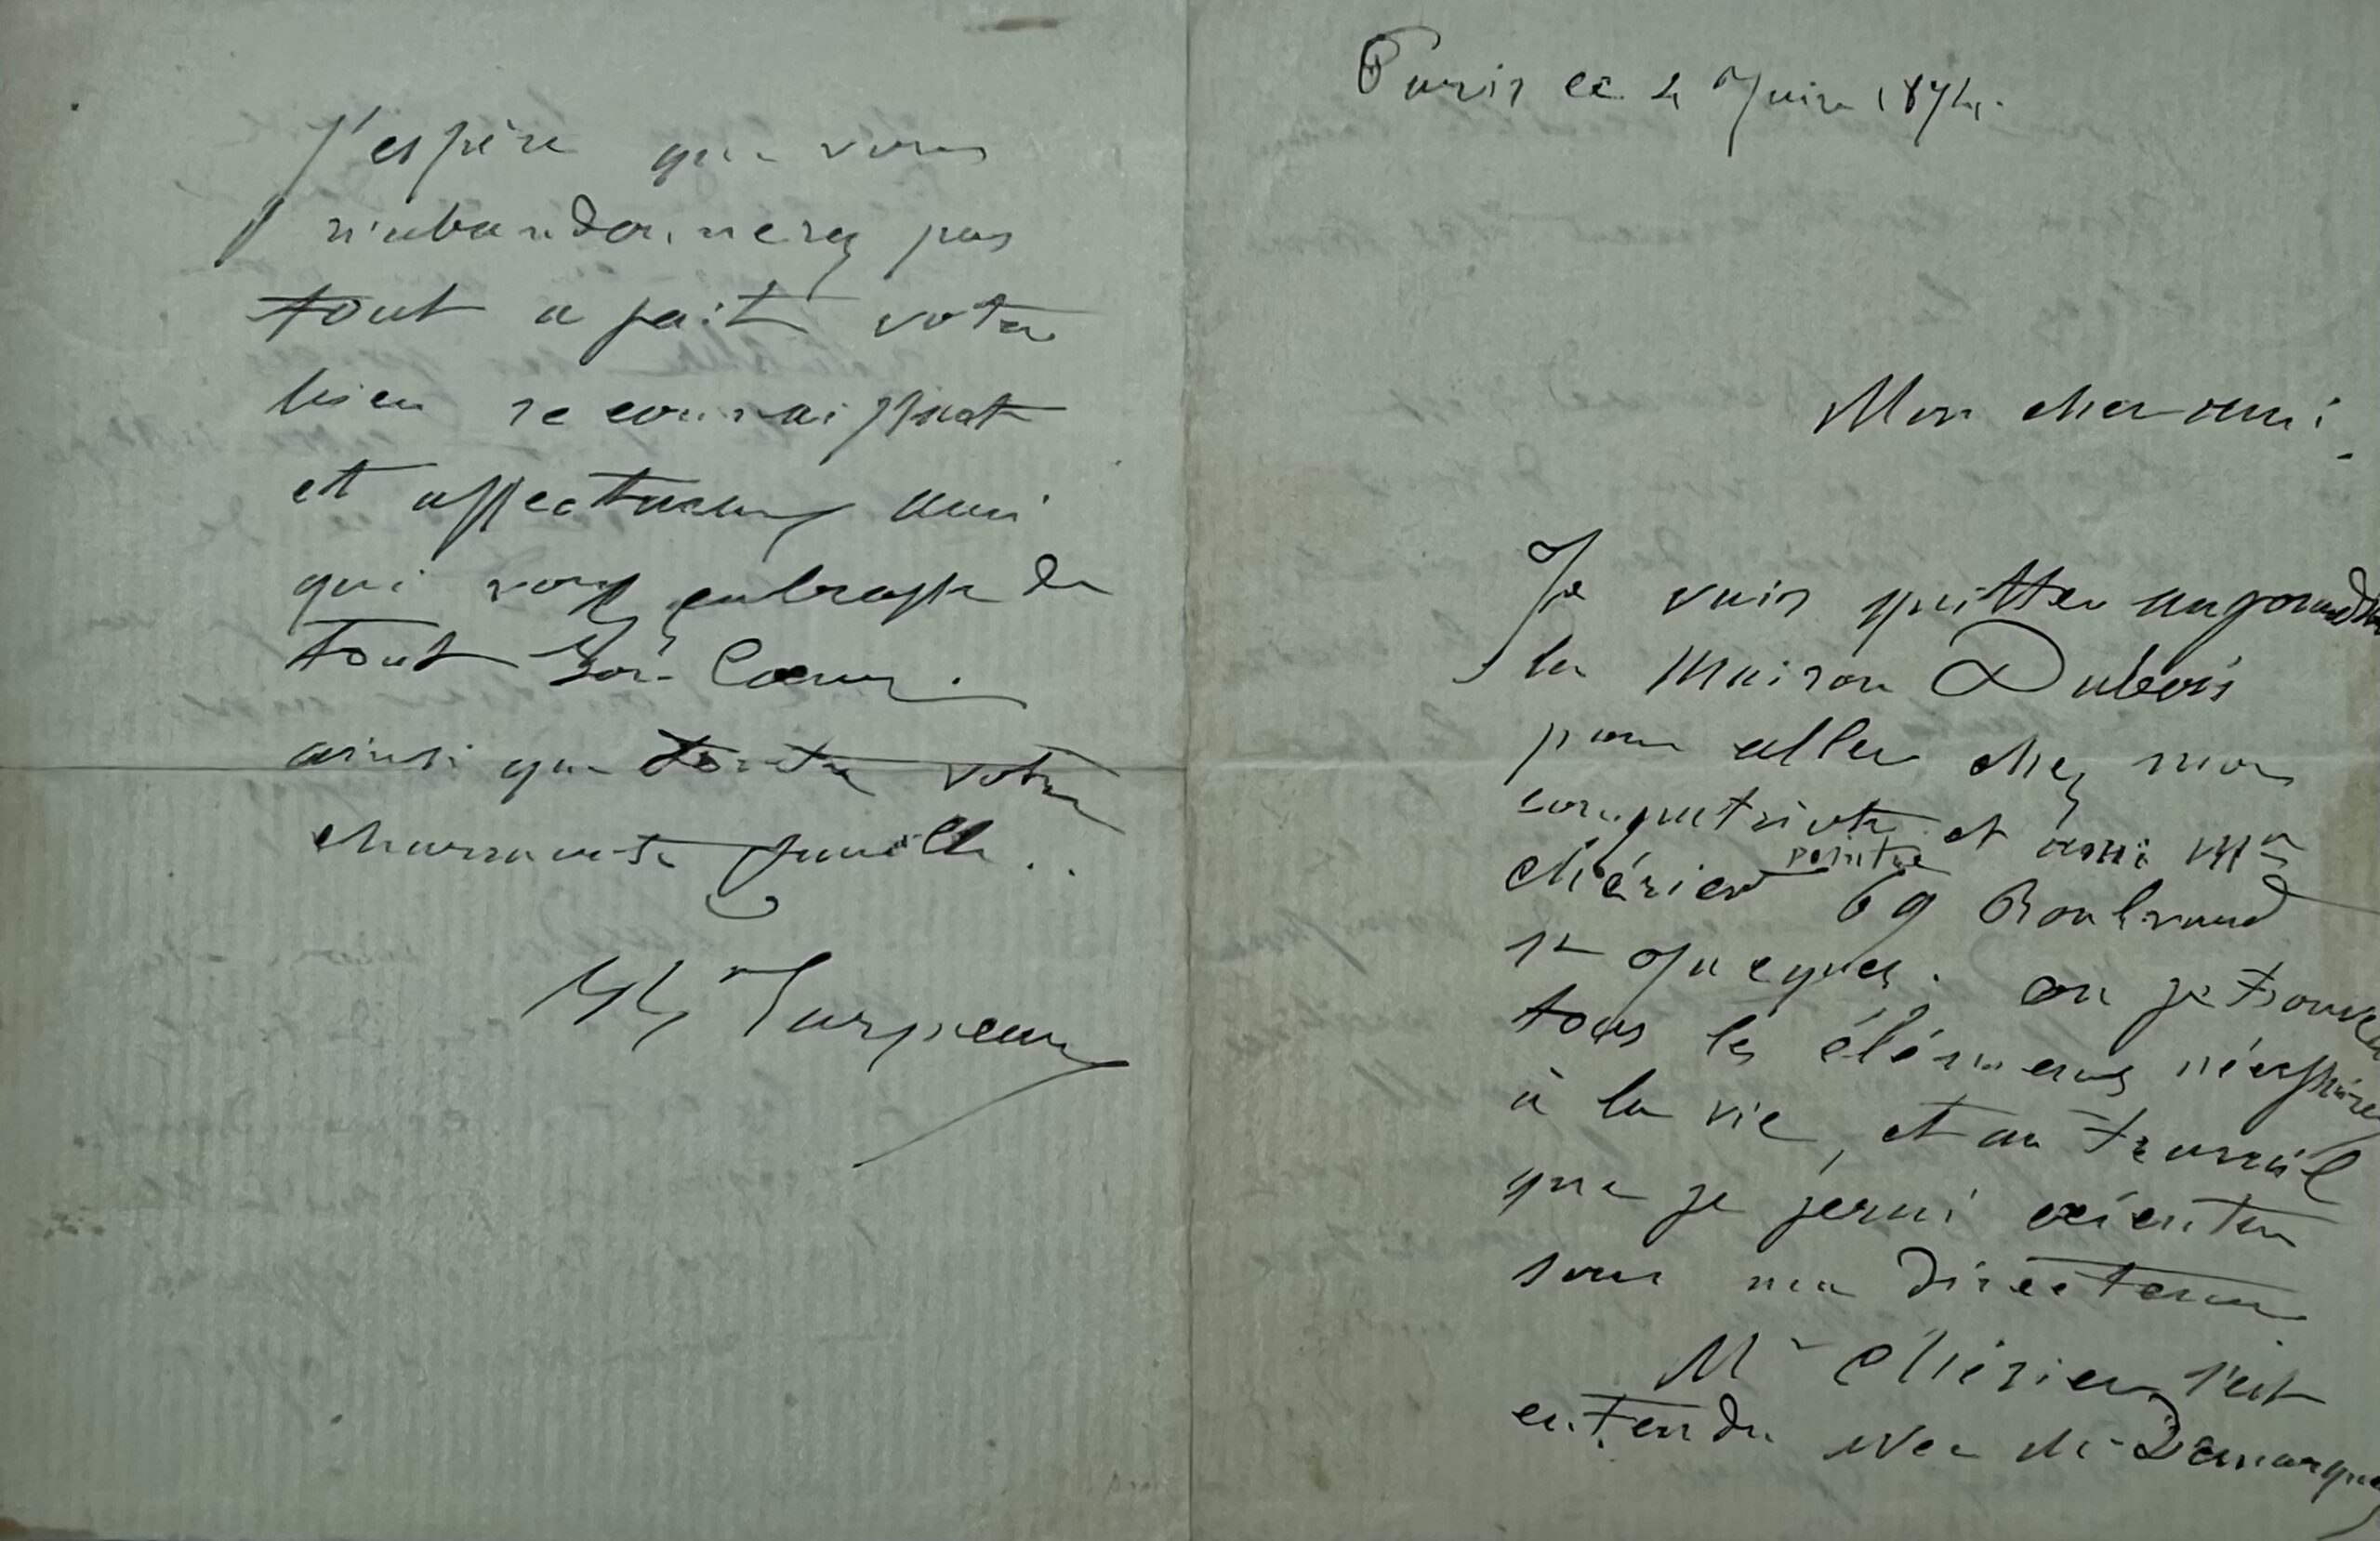 Paris ce 2 Juin 1874.
Mon cher ami,
Je vais quitter
la Maison Dubois
pour aller chez mon
compatriote et ami Mr
Chérier peintre 69 Boulevard
St Jacques. ou je trouve
tous les élémens
à la vie, et au travail
que je ferai exécuter
sous ma
Mr Chérier s'est
entendu avec Mr Demarquay
J'espère que vous
n'abandonnerez pas
tout a fait votre
bien reconnaissant
et affectueux ami
qui vous embrasse de
tout son Cœur.
ainsi que toute votre
charmante famille.
Carpeaux